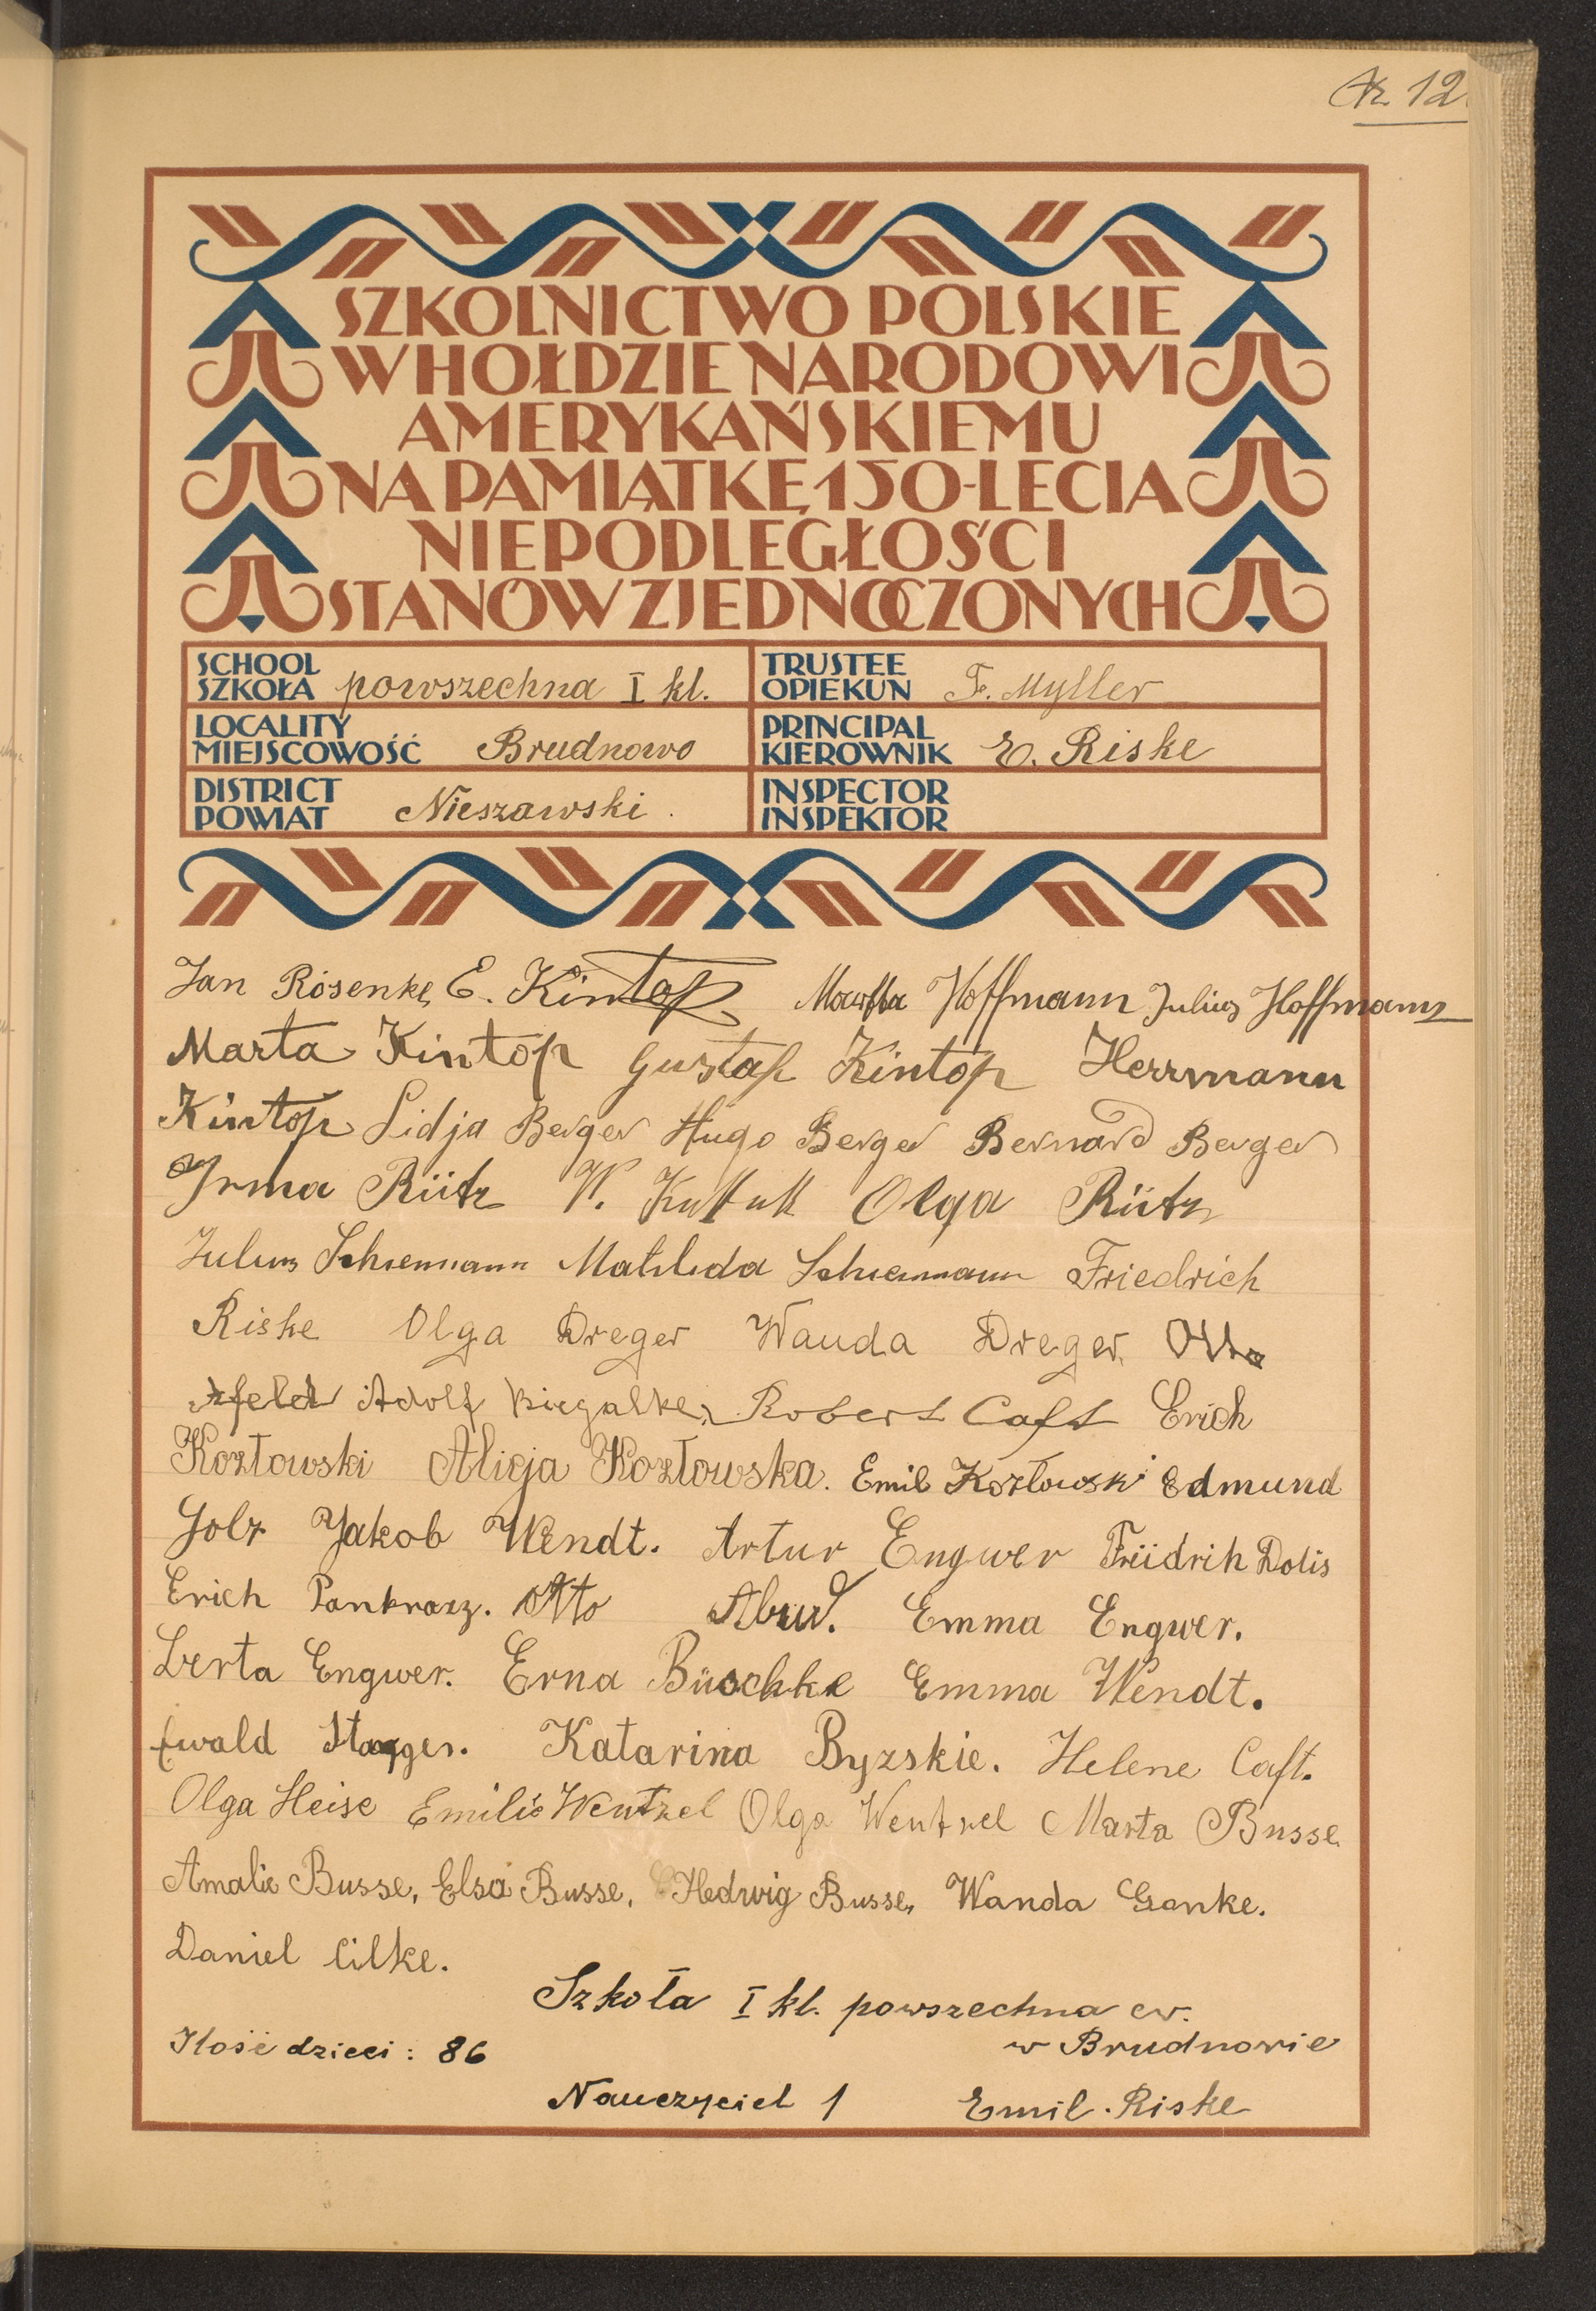 Nr. 12.
SZKOLNICTWO POLSKIE
W HOŁDZIE NARODOWI
AMERYKAŃSKIEMU
NA PAMIĄTKĘ 150-LECIA
NIEPODLEGŁOŚCI
STANÓW ZJEDNOCZONYCH
SCHOOL
SZKOŁA powszechna I kl.
TRUSTEE
OPIEKUN F. Myller
LOCALITY
MIEJSCOWOŚĆ Brudnowo
PRINCIPAL
KIEROWNIK E. Riske
DISTRICT
POWIAT Nieszawski.
INSPECTOR
INSPEKTOR
Jan Rosenke, E. Kintop Hoffmann Julius Hoffmann
Marta Kintop Gustaf Kintop Herrmann
Kintop Lidja Berger Hugo Berger Bernard Berger
Irma Rütz W. Olga Rütz
Julius Schienmann Matilda Schienmann Friedrich
Riske Olga Dreger Wanda Dreger. Otto
Adolf Biegalke, Robert Caft Erich
Kozłowski Alicja Kozłowska. Emil Kozłowski Edmund
Golz Jakob Wendt. Artur Engwer Friidrih Dolis
Erich Pankrazz. Otto Emma Engwer.
Berta Engwer. Erna Büschke Emma Wendt.
Ewald Katarina Byzskie. Helene Caft.
Olga Heise Emilie Wentzel Olga Wentzel Marta Busse
Amalie Busse, Elsa Busse, Hedwig Busse, Wanda Genke.
Daniel Cilke.
Szkoła I kl. powszechna ew.
w Brudnowie
Ilość dzieci: 86
Nauczyciel 1 Emil Riske